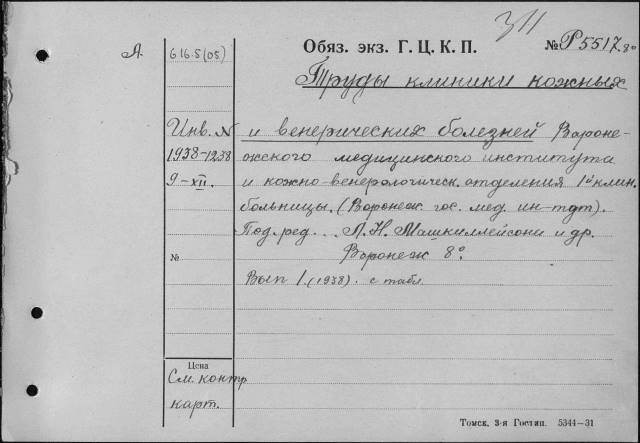 311
А
616.5(05)
Обяз. экз. Г. Ц. К. П.
№ Р5517 80
Труды клиники кожных
Инв. N
и венерических болезней Вороне-
1938-1238
жского медицинского института
9-XII.
и кожно-венерологическ. отделения 1й клин.
больницы. (Воронеж гос. мед. ин-тдт).
Под. ред... Л. Н. Машкиллейсони и др.
№
Воронеж 8°
Вып 1. (1938). с табл.
Цена
См. контр
карт.
Томск, 3-я Гостип. 5344—31